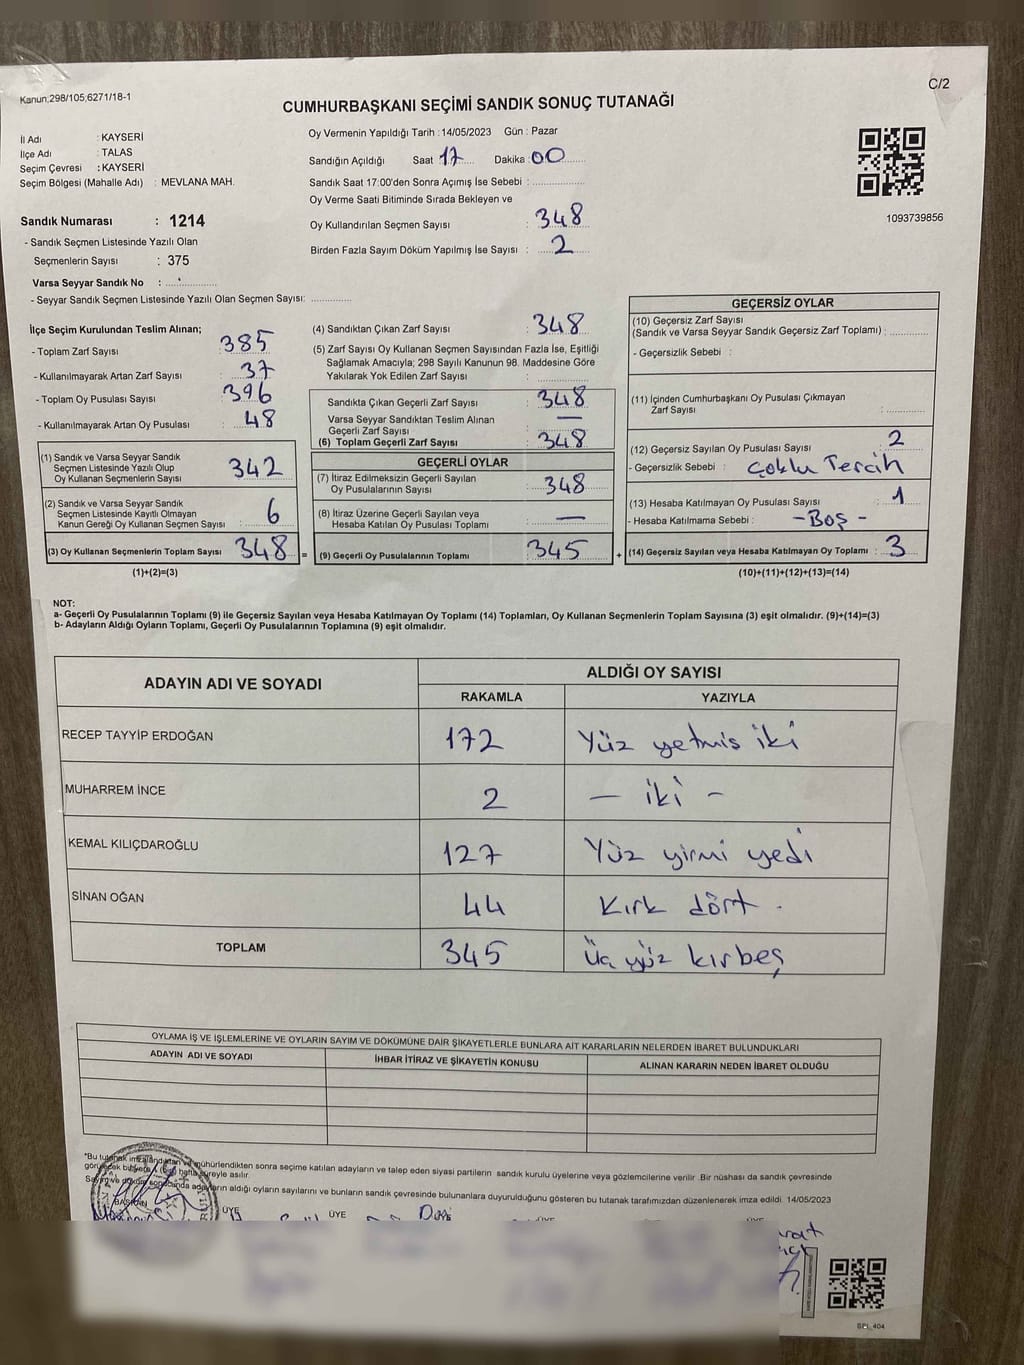 Kanun,298/105,6271/18-1
C/2
CUMHURBAŞKANI SEÇİMİ SANDIK SONUÇ TUTANAĞI
İl Adı : KAYSERİ
İlçe Adı : TALAS
Seçim Çevresi : KAYSERİ
Seçim Bölgesi (Mahalle Adı) : MEVLANA MAH.
Oy Vermenin Yapıldığı Tarih : 14/05/2023 Gün : Pazar
Sandığın Açıldığı Saat 17 Dakika : 00
Sandık Saat 17:00'den Sonra Açımış İse Sebebi :
Oy Verme Saati Bitiminde Sırada Bekleyen ve
Oy Kullandırılan Seçmen Sayısı : 348
Birden Fazla Sayım Döküm Yapılmış İse Sayısı : 2
1093739856
Sandık Numarası : 1214
- Sandık Seçmen Listesinde Yazılı Olan
Seçmenlerin Sayısı : 375
Varsa Seyyar Sandık No :
- Seyyar Sandık Seçmen Listesinde Yazılı Olan Seçmen Sayısı:
İlçe Seçim Kurulundan Teslim Alınan;
- Toplam Zarf Sayısı : 385
- Kullanılmayarak Artan Zarf Sayısı : 37
- Toplam Oy Pusulası Sayısı : 396
- Kullanılmayarak Artan Oy Pusulası : 48
(1) Sandık ve Varsa Seyyar Sandık
Seçmen Listesinde Yazılı Olup
Oy Kullanan Seçmenlerin Sayısı : 342
(2) Sandık ve Varsa Seyyar Sandık
Seçmen Listesinde Kayıtlı Olmayan
Kanun Gereği Oy Kullanan Seçmen Sayısı : 6
(3) Oy Kullanan Seçmenlerin Toplam Sayısı : 348 =
(1)+(2)=(3)
(4) Sandıktan Çıkan Zarf Sayısı : 348
(5) Zarf Sayısı Oy Kullanan Seçmen Sayısından Fazla İse, Eşitliği
Sağlamak Amacıyla; 298 Sayılı Kanunun 98. Maddesine Göre
Yakılarak Yok Edilen Zarf Sayısı :
Sandıkta Çıkan Geçerli Zarf Sayısı : 348
Varsa Seyyar Sandıktan Teslim Alınan
Geçerli Zarf Sayısı : —
(6) Toplam Geçerli Zarf Sayısı : 348
GEÇERLİ OYLAR
(7) İtiraz Edilmeksizin Geçerli Sayılan
Oy Pusulalarının Sayısı : 348
(8) İtiraz Üzerine Geçerli Sayılan veya
Hesaba Katılan Oy Pusulası Toplamı : —
(9) Geçerli Oy Pusulalarının Toplamı : 345 +
GEÇERSİZ OYLAR
(10) Geçersiz Zarf Sayısı
(Sandık ve Varsa Seyyar Sandık Geçersiz Zarf Toplamı) :
- Geçersizlik Sebebi :
(11) İçinden Cumhurbaşkanı Oy Pusulası Çıkmayan
Zarf Sayısı :
(12) Geçersiz Sayılan Oy Pusulası Sayısı : 2
- Geçersizlik Sebebi : Çoklu Tercih
(13) Hesaba Katılmayan Oy Pusulası Sayısı : 1
- Hesaba Katılmama Sebebi : -Boş-
(14) Geçersiz Sayılan veya Hesaba Katılmayan Oy Toplamı : 3
(10)+(11)+(12)+(13)=(14)
NOT:
a- Geçerli Oy Pusulalarının Toplamı (9) ile Geçersiz Sayılan veya Hesaba Katılmayan Oy Toplamı (14) Toplamları, Oy Kullanan Seçmenlerin Toplam Sayısına (3) eşit olmalıdır. (9)+(14)=(3)
b- Adayların Aldığı Oyların Toplamı, Geçerli Oy Pusulalarının Toplamına (9) eşit olmalıdır.
ADAYIN ADI VE SOYADI ALDIĞI OY SAYISI
RAKAMLA YAZIYLA
RECEP TAYYİP ERDOĞAN 172 Yüz yetmis iki
MUHARREM İNCE 2 — iki –
KEMAL KILIÇDAROĞLU 127 Yüz yirmi yedi
SİNAN OĞAN 44 Kırk dört .
TOPLAM 345 Üç yüz kırbeş
OYLAMA İŞ VE İŞLEMLERİNE VE OYLARIN SAYIM VE DÖKÜMÜNE DAİR ŞİKAYETLERLE BUNLARA AİT KARARLARIN NELERDEN İBARET BULUNDUKLARI
ADAYIN ADI VE SOYADI İHBAR İTİRAZ VE ŞİKAYETİN KONUSU ALINAN KARARIN NEDEN İBARET OLDUĞU
*Bu tutanak imzalandıktan ve mühürlendikten sonra seçime katılan adayların ve talep eden siyasi partilerin sandık kurulu üyelerine veya gözlemcilerine verilir. Bir nüshası da sandık çevresinde
hafta süreyle asılır.
Sayım ve döküm sonucunda adayların aldığı oyların sayılarını ve bunların sandık çevresinde bulunanlara duyurulduğunu gösteren bu tutanak tarafımızdan düzenlenerek imza edildi. 14/05/2023
BAŞKAN ÜYE ÜYE ÜYE ÜYE